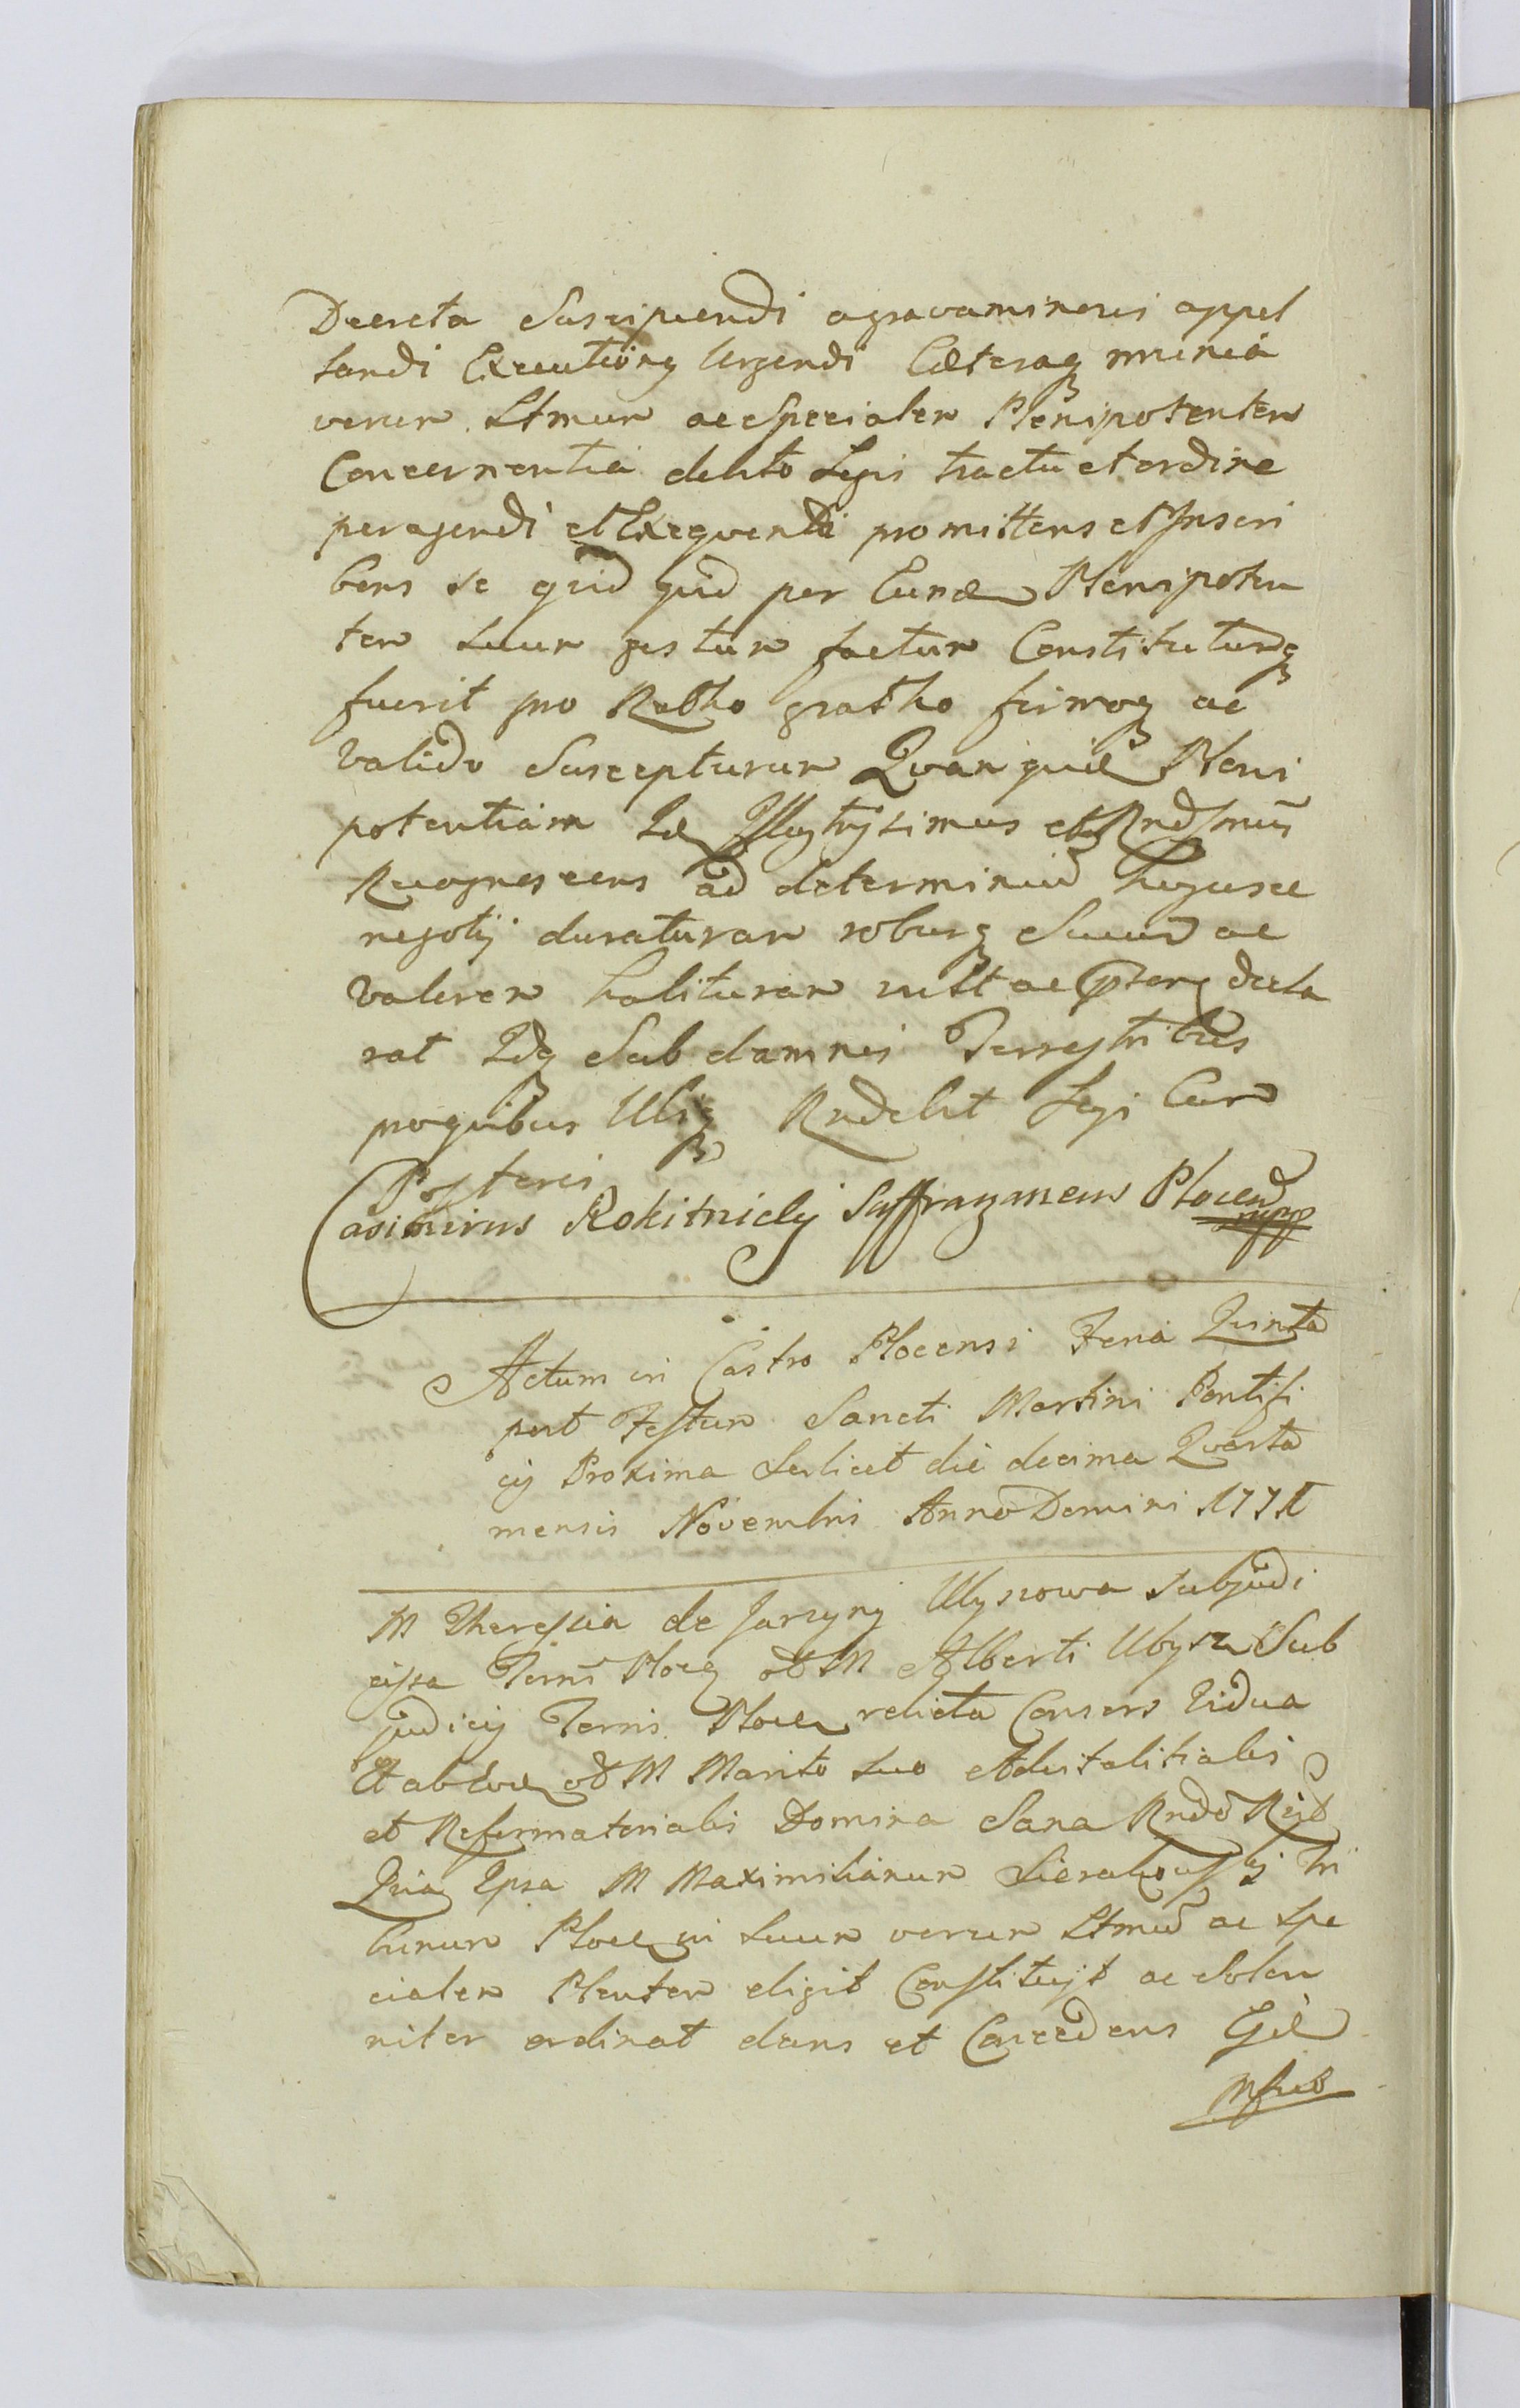 Decreta Suscipiendi agravaminevi appel
landi Executionq Urgendi Cæteraq munia
verum Ltmum ac Specialem Plenipotentem
Concernentia debito Legis tractu et ordine
peragendi et Exequendi promittens et Inscri
bens se quid quid per Eund Plenipoten
tem Suum gestum factum Constitutumq
fuerit pro Ratho gratho firmoq ac
Valido Suscepturum Quamquid Pleni
potentiam Id Illustrissimus et Rndssmus
Recognoscens ad determinium hujusce
negotij duraturam roburq Suum ac
Valorem habituram vult ac decla
rat Idq Sub damnis Terrestribus
pro quibus Ubiq Rndebit Legi Cum
Posteris
Casimirus Rokitnicky Suffraganeus Plocen mpp
Actum in Castro Plocensi Feria Quinta
post Festum Sancti Martini Pontifi
cij Proxima Scilicet die decima Quarta
mensis Novembris Anno Domini 1771
M Theressia de Jarzyny Ubyszowa Subjudi
cissa Terris Plocq od M Alberti Ubysz Sub
judicij Terris Plocen relicta Consors Vidua
Et ab Eod od M Marito Suo Advitalitialis
et Reformatorialis Domina Sana Rndo Rejt
Quia Ipsa M Maximilianum Sierakowskij Tri
bunum Plocen in Suum verum Ltmum ac Spe
cialem Plentem eligit Constituijt ac Solen
niter ordinat dans et Concedens Eid